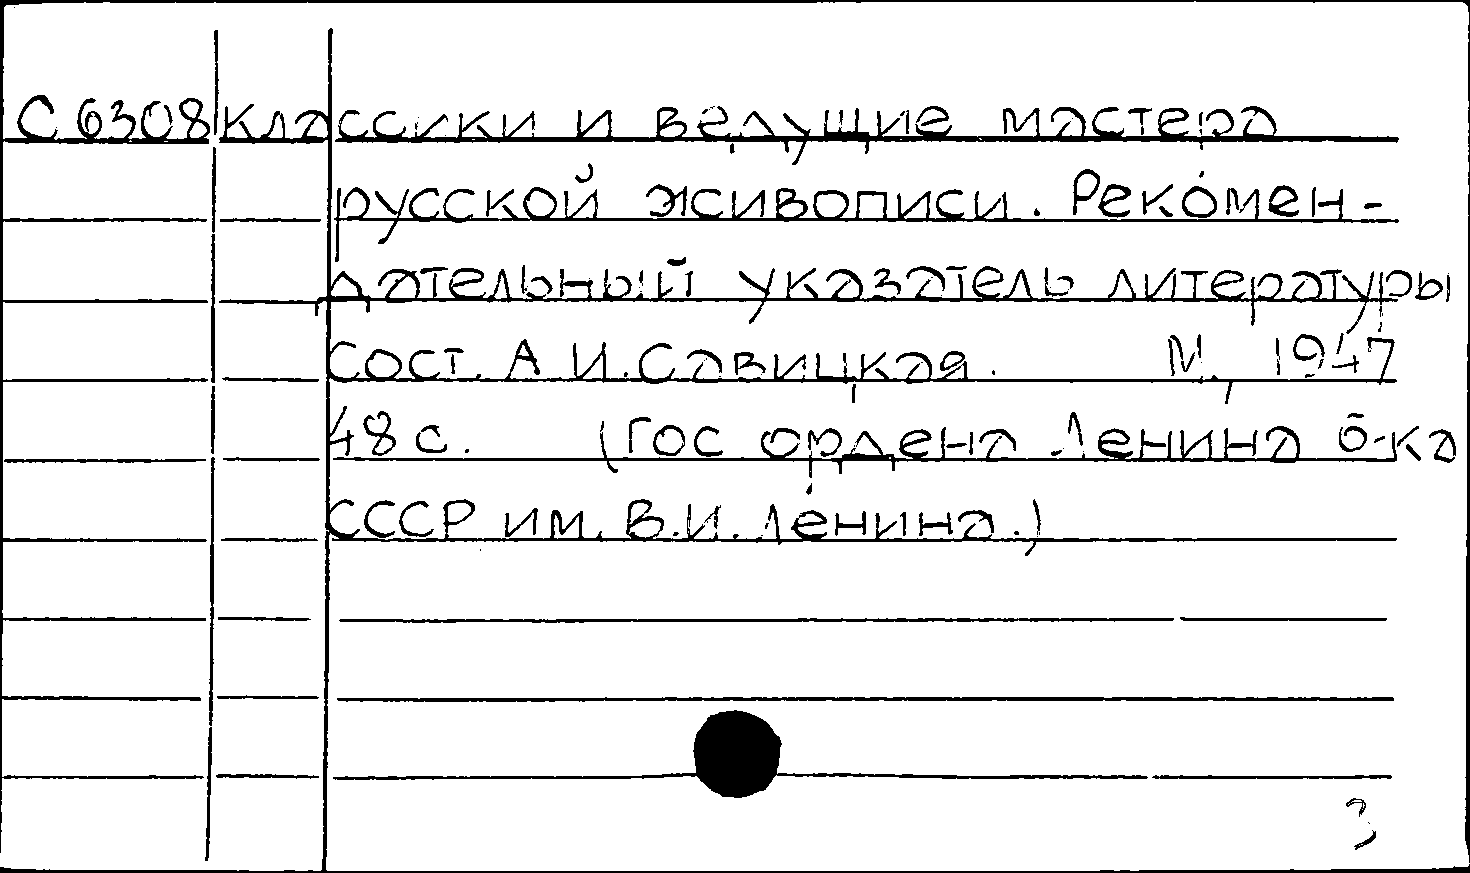 С 6308 классики и ведущие мастера
русской живописи. Рекомен-
дательный указатель литературы
Сост. А И. Савицкая. М., 1947
48 с. (Гос ордена Ленина б-ка
СССР им. В.И. Ленина.)
3